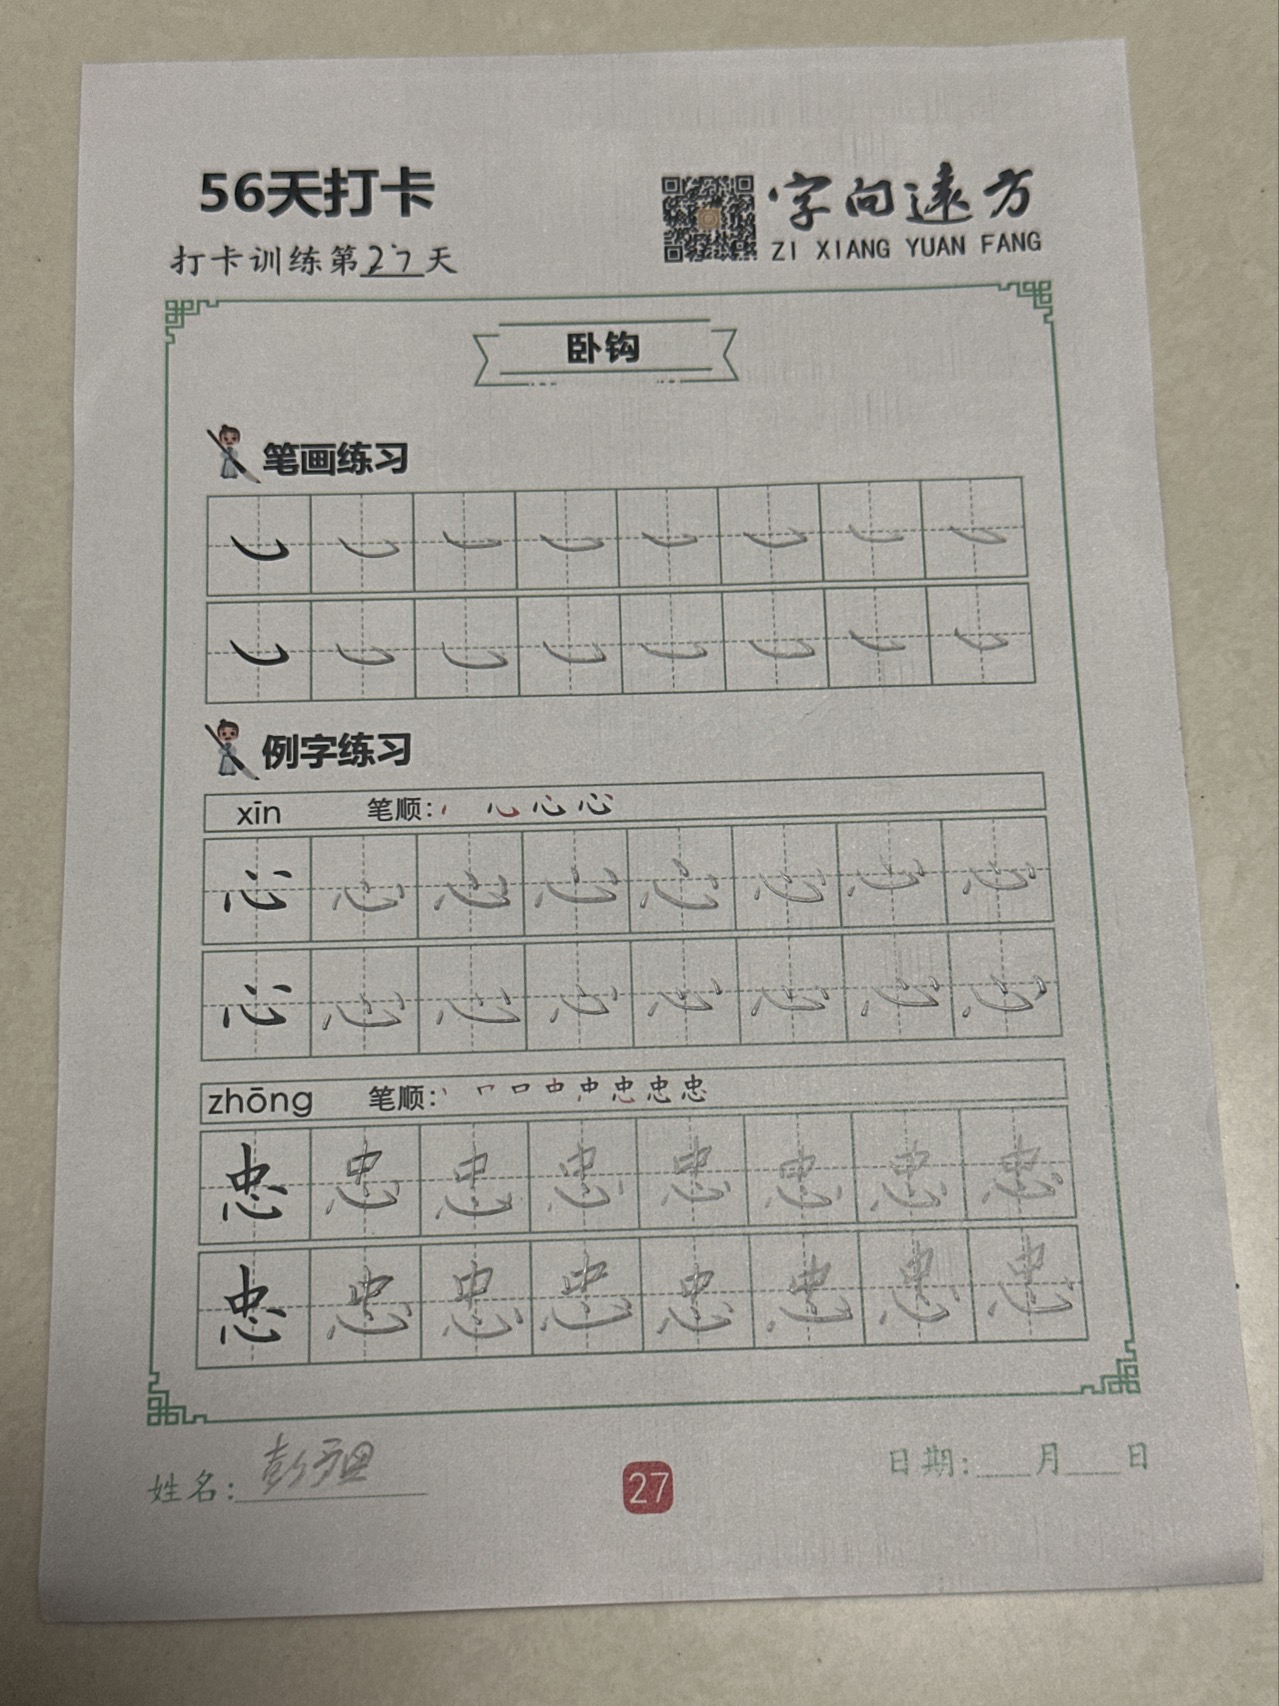 56天打卡
字向远方
打卡训练第27天
ZI XIANG YUAN FANG
卧钩
笔画练习
例字练习
xīn 笔顺: 心 心 心
心 心 心 心 心 心 心 心
心 心 心 心 心 心 心 心
zhōng 笔顺: 丨 冖 口 中 忠 忠 忠
忠 忠 忠 忠 忠 忠 忠 忠
忠 忠 忠 忠 忠 忠 忠 忠
姓名:
27
日期: 月 日